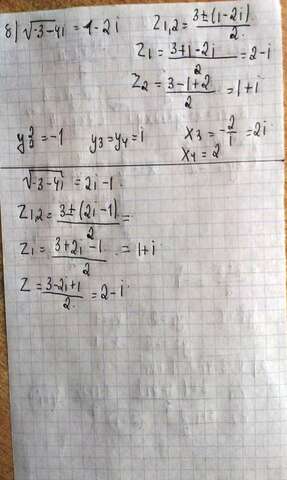 б) √-3-4i = 1-2i
Z1,2 = 3±(1-2i)/2
Z1 = 3+1-2i/2 = 2-i
Z2 = 3-1+2/2 = 1+i
y²3 = -1 y3 = y4 = i x3 = -2/i = 2i
x4 = 2
√-3-4i = 2i-1
Z1,2 = 3±(2i-1)/2 =
Z1 = 3+2i-1/2 = 1+i
Z = 3-2i+1/2 = 2-i